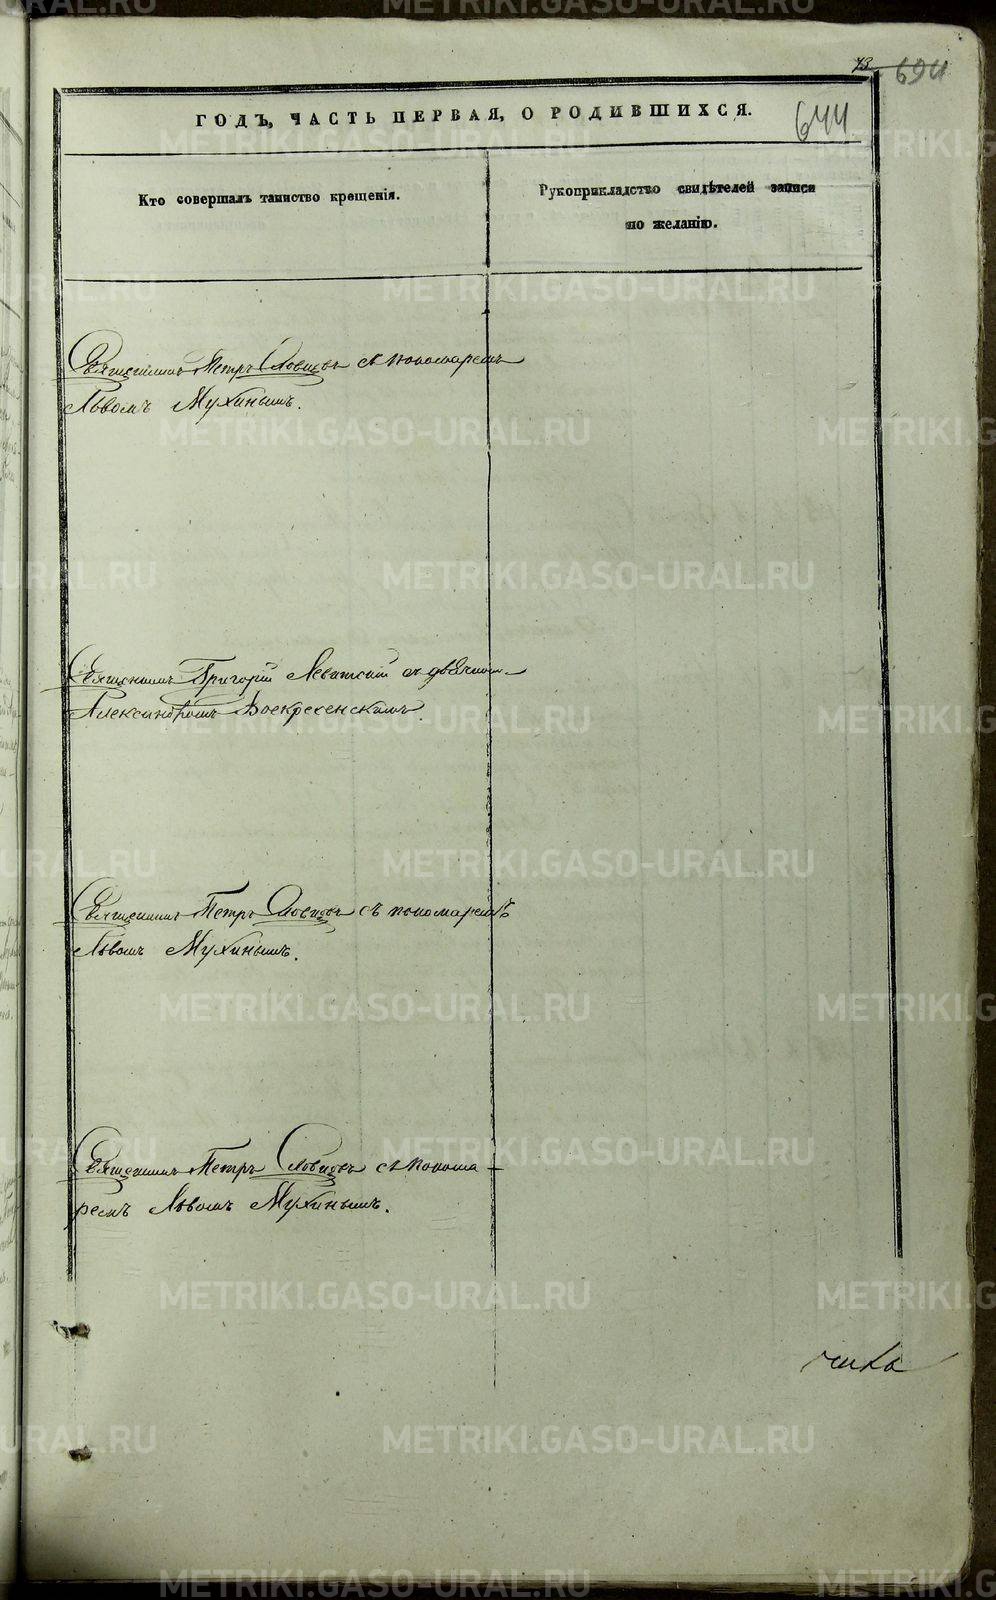 73 694
ГОДЪ, ЧАСТЬ ПЕРВАЯ, О РОДИВШИХСЯ.
644
Кто совершалъ таинство крещенія.
Рукоприкладство свидѣтелей записи
по желанію.
Священникъ Петръ Словцовъ съ пономаремъ
Львомъ Мухинымъ.
Священникъ Григорій Левитскій съ дьячкомъ
Александромъ Воскресенскимъ.
Священникъ Петръ Словцовъ съ пономаремъ
Львомъ Мухинымъ.
Священникъ Петръ Словцовъ съ понома-
ремъ Львомъ Мухинымъ.
METRIKI.GASO-URAL.RU